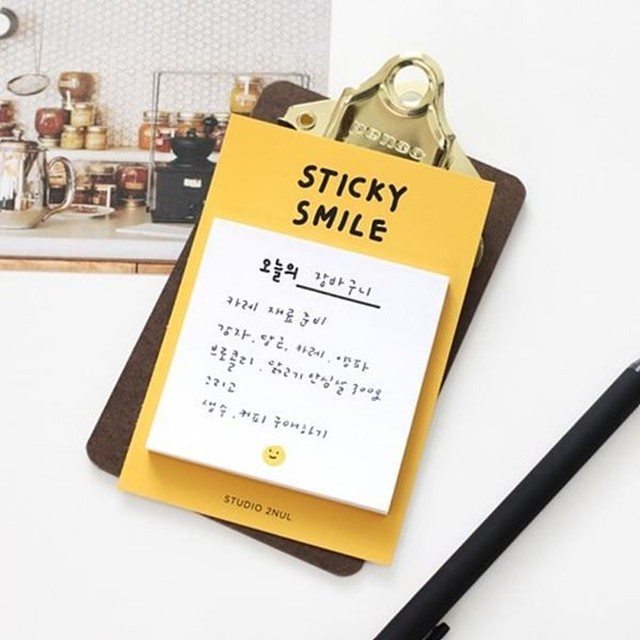 penco
STICKY
SMILE
오늘의 장바구니
카레 재료 준비
감자, 당근, 카레, 양파
브로콜리, 닭고기 안심살 300g
그리고
생수, 커피 구매하기
STUDIO 2NUL